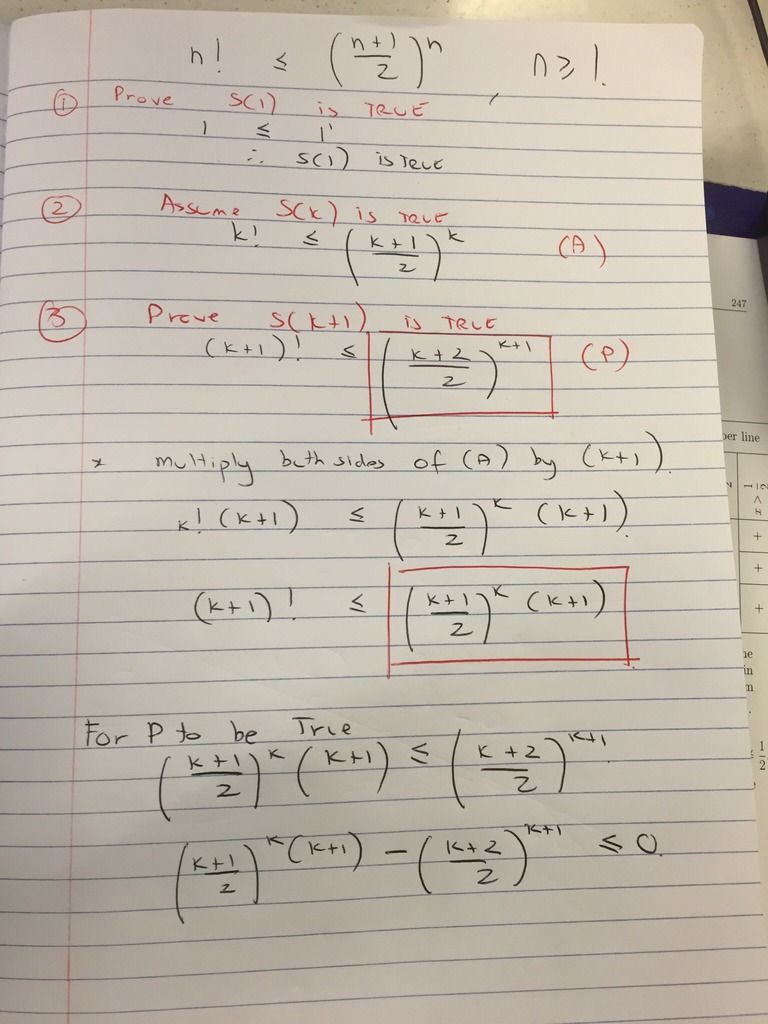 n! ≤ ((n+1)/2)^n , n ≥ 1.
① Prove S(1) is TRUE
1 ≤ 1¹
∴ S(1) is TRUE
② Assume S(k) is TRUE
k! ≤ ((k+1)/2)^k (A)
③ Prove S(k+1) is TRUE
(k+1)! ≤ ((k+2)/2)^(k+1) (P)
* multiply both sides of (A) by (k+1).
k! (k+1) ≤ ((k+1)/2)^k (k+1).
(k+1)! ≤ ((k+1)/2)^k (k+1)
For P to be True
((k+1)/2)^k (k+1) ≤ ((k+2)/2)^(k+1).
((k+1)/2)^k (k+1) − ((k+2)/2)^(k+1) ≤ 0.
247
per line
+
+
+
1/2